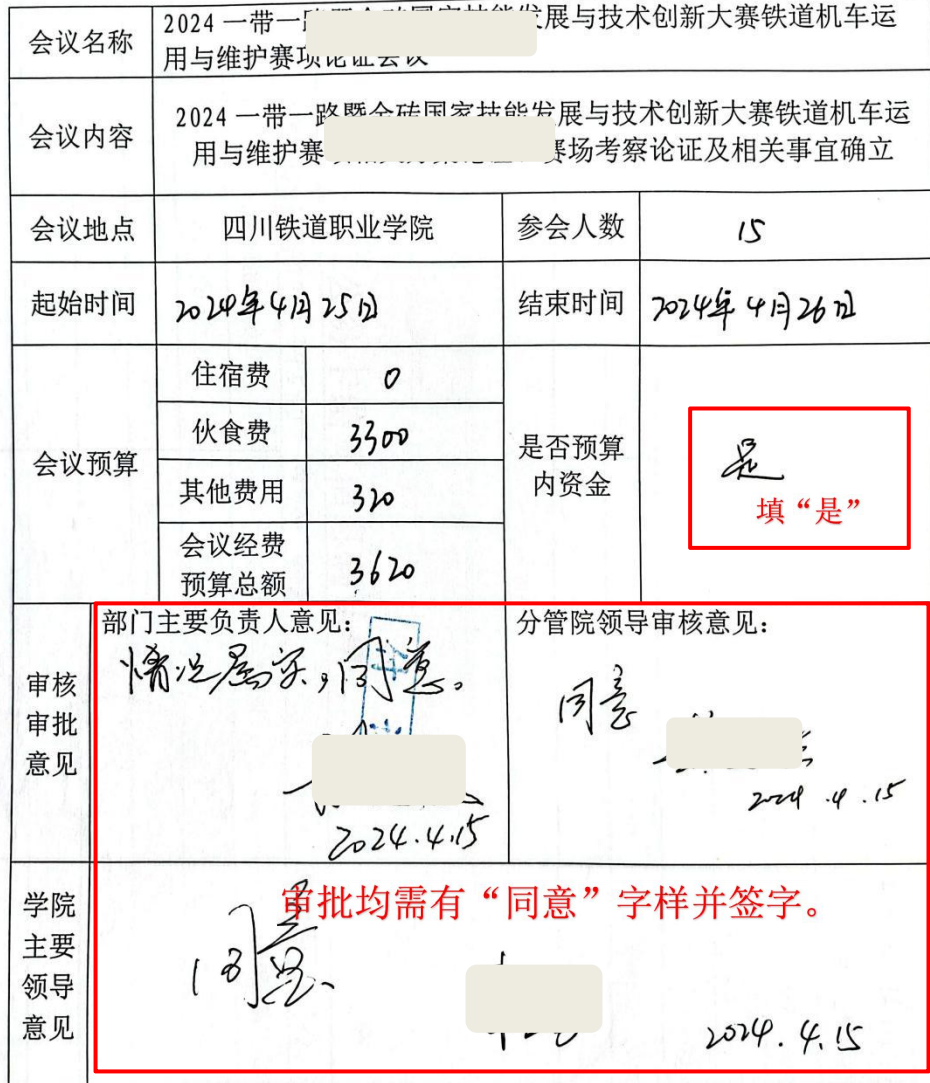 会议名称
2024 一带一 发展与技术创新大赛铁道机车运
用与维护赛项论证会议
会议内容
2024 一带一路暨金砖国家技能发展与技术创新大赛铁道机车运
用与维护赛 赛场考察论证及相关事宜确立
会议地点 四川铁道职业学院 参会人数 15
起始时间 2024年4月25日 结束时间 2024年4月26日
会议预算
住宿费 0
伙食费 3300
其他费用 320
会议经费
预算总额 3620
是否预算
内资金
是
填“是”
审核
审批
意见
部门主要负责人意见：
情况属实，同意。
2024.4.15
分管院领导审核意见：
同意
2024.4.15
学院
主要
领导
意见
审批均需有“同意”字样并签字。
同意
2024.4.15